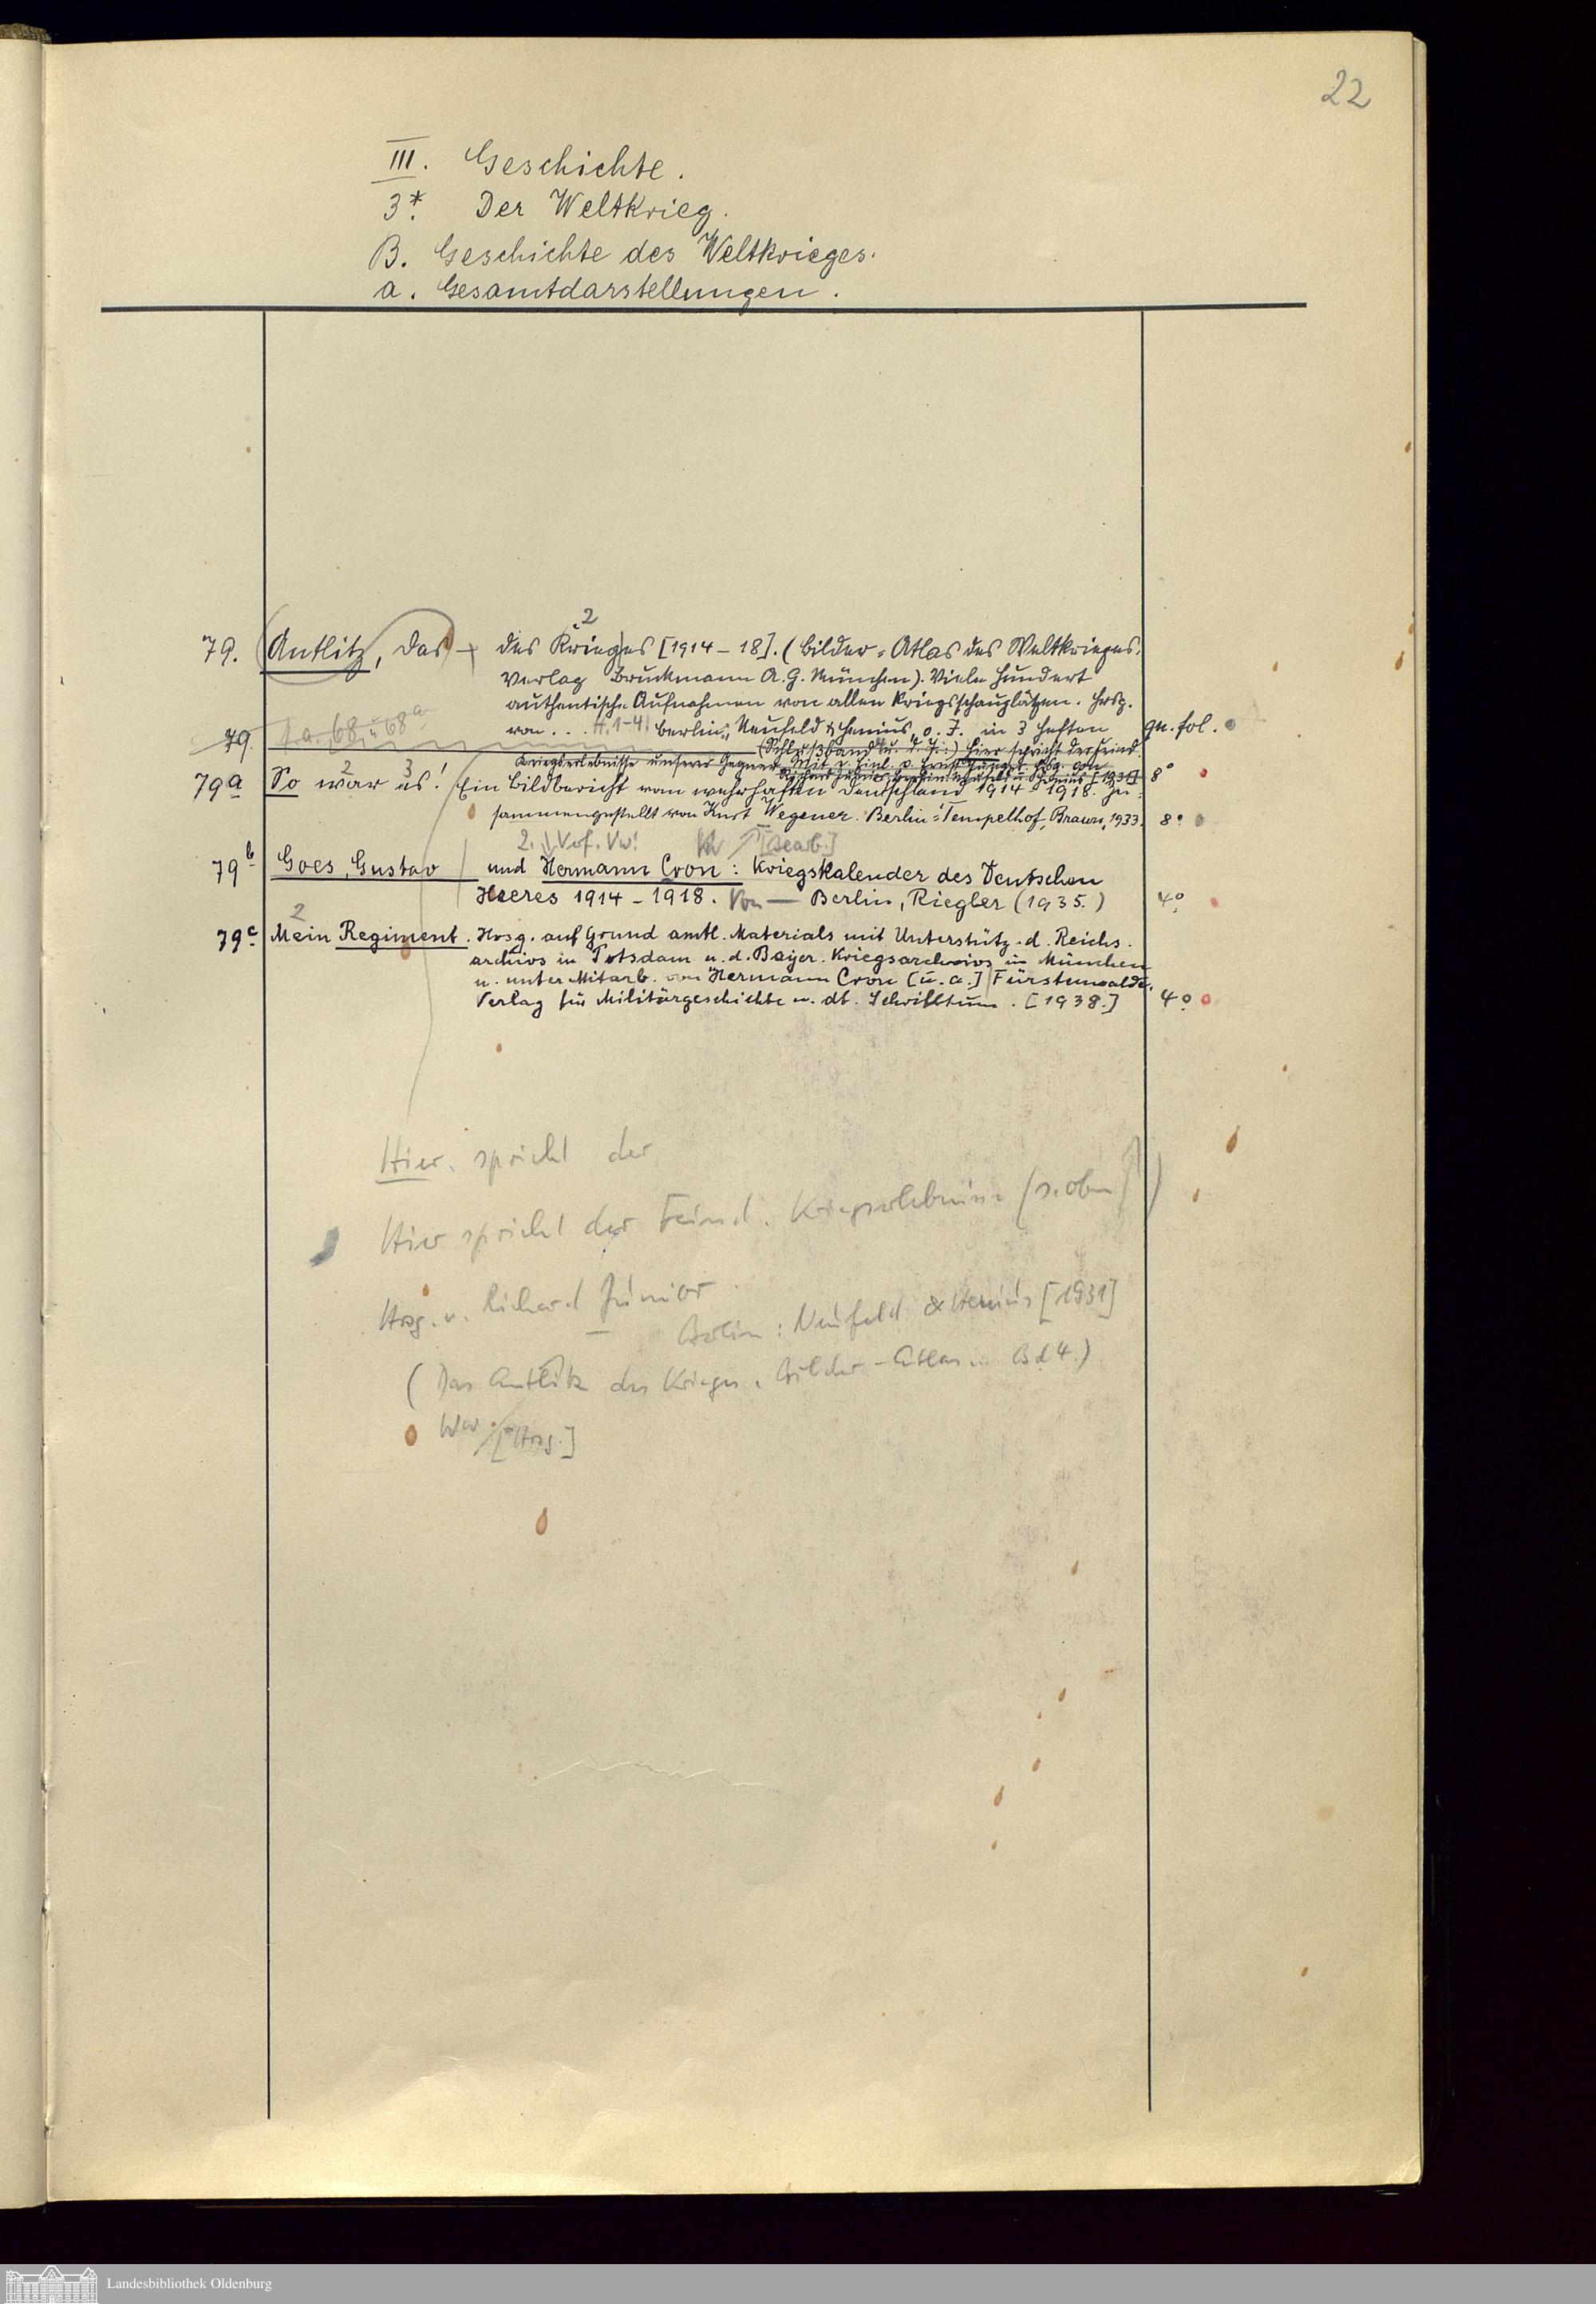 22
III. Geschichte.
3*. Der Weltkrieg.
B. Geschichte des Weltkrieges.
a. Gesamtdarstellungen.
2
79. Antlitz, Das – des Krieges [1914–18]. (Bilder=Atlas des Weltkrieges.
Verlag Bruckmann A.G. München). Viele Hundert
authentische Aufnahmen von allen Kriegsschauplätzen. Hrsg.
von . . . H. 1-4. Berlin, Neufeld & Henius, o. J. in 3 Heften qu. fol.
79. a. 68 u 68a
(Schlußband u. d. T.:) Hier spricht der Feind.
Kriegserlebnisse unserer Gegner. Mit e. Einl. v. Ernst Jünger. Hrsg. von
Richard Junior. Berlin: Neufeld u. Henius [1931] 8°
2 3
79a So war es! Ein Bildbericht vom wehrhaften Deutschland 1914–1918. Zu=
sammengestellt von Kurt Wegener. Berlin=Tempelhof, Braun, 1933. 8°
2. Verf. Vw! [Bearb.]
79b Goes, Gustav und Hermann Cron: Kriegskalender des Deutschen
Heeres 1914–1918. Von — Berlin, Riegler (1935.) 4°
2
79c Mein Regiment. Hrsg. auf Grund amtl. Materials mit Unterstütz. d. Reichs.
archivs in Potsdam u. d. Bayer. Kriegsarchivs in München
u. unter Mitarb. von Hermann Cron [u. a.] Fürstenwalde.
Verlag für Militärgeschichte u. dt. Schrifttum. [1938.] 4°
Hier spricht der
Hier spricht der Feind. Kriegserlebnisse (s. oben)
Hrsg. v. Richard Junior.
Berlin: Neufeld & Henius [1931]
(Das Antlitz des Krieges. Bilder-Atlas Bd 4.)
[Hrsg.]
Landesbibliothek Oldenburg